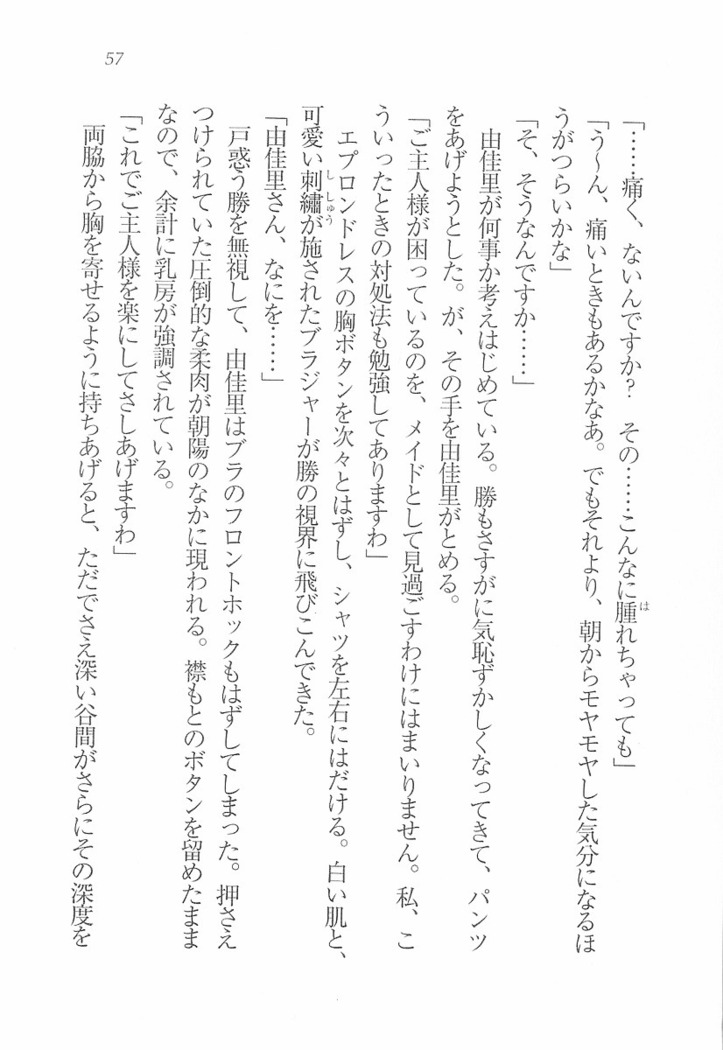 57
「……痛く、ないんですか？　その……こんなに腫れちゃっても」
は
「う～ん、痛いときもあるかなあ。でもそれより、朝からモヤモヤした気分になるほ
うがつらいかな」
「そ、そうなんですか……」
由佳里が何事か考えはじめている。勝もさすがに気恥ずかしくなってきて、パンツ
をあげようとした。が、その手を由佳里がとめる。
「ご主人様が困っているのを、メイドとして見過ごすわけにはまいりません。私、こ
ういったときの対処法も勉強してありますわ」
エプロンドレスの胸ボタンを次々とはずし、シャツを左右にはだける。白い肌と、
可愛い刺繡が施されたブラジャーが勝の視界に飛びこんできた。
ししゅう
「由佳里さん、なにを……」
戸惑う勝を無視して、由佳里はブラのフロントホックもはずしてしまった。押さえ
つけられていた圧倒的な柔肉が朝陽のなかに現われる。襟もとのボタンを留めたまま
なので、余計に乳房が強調されている。
「これでご主人様を楽にしてさしあげますわ」
両脇から胸を寄せるように持ちあげると、ただでさえ深い谷間がさらにその深度を